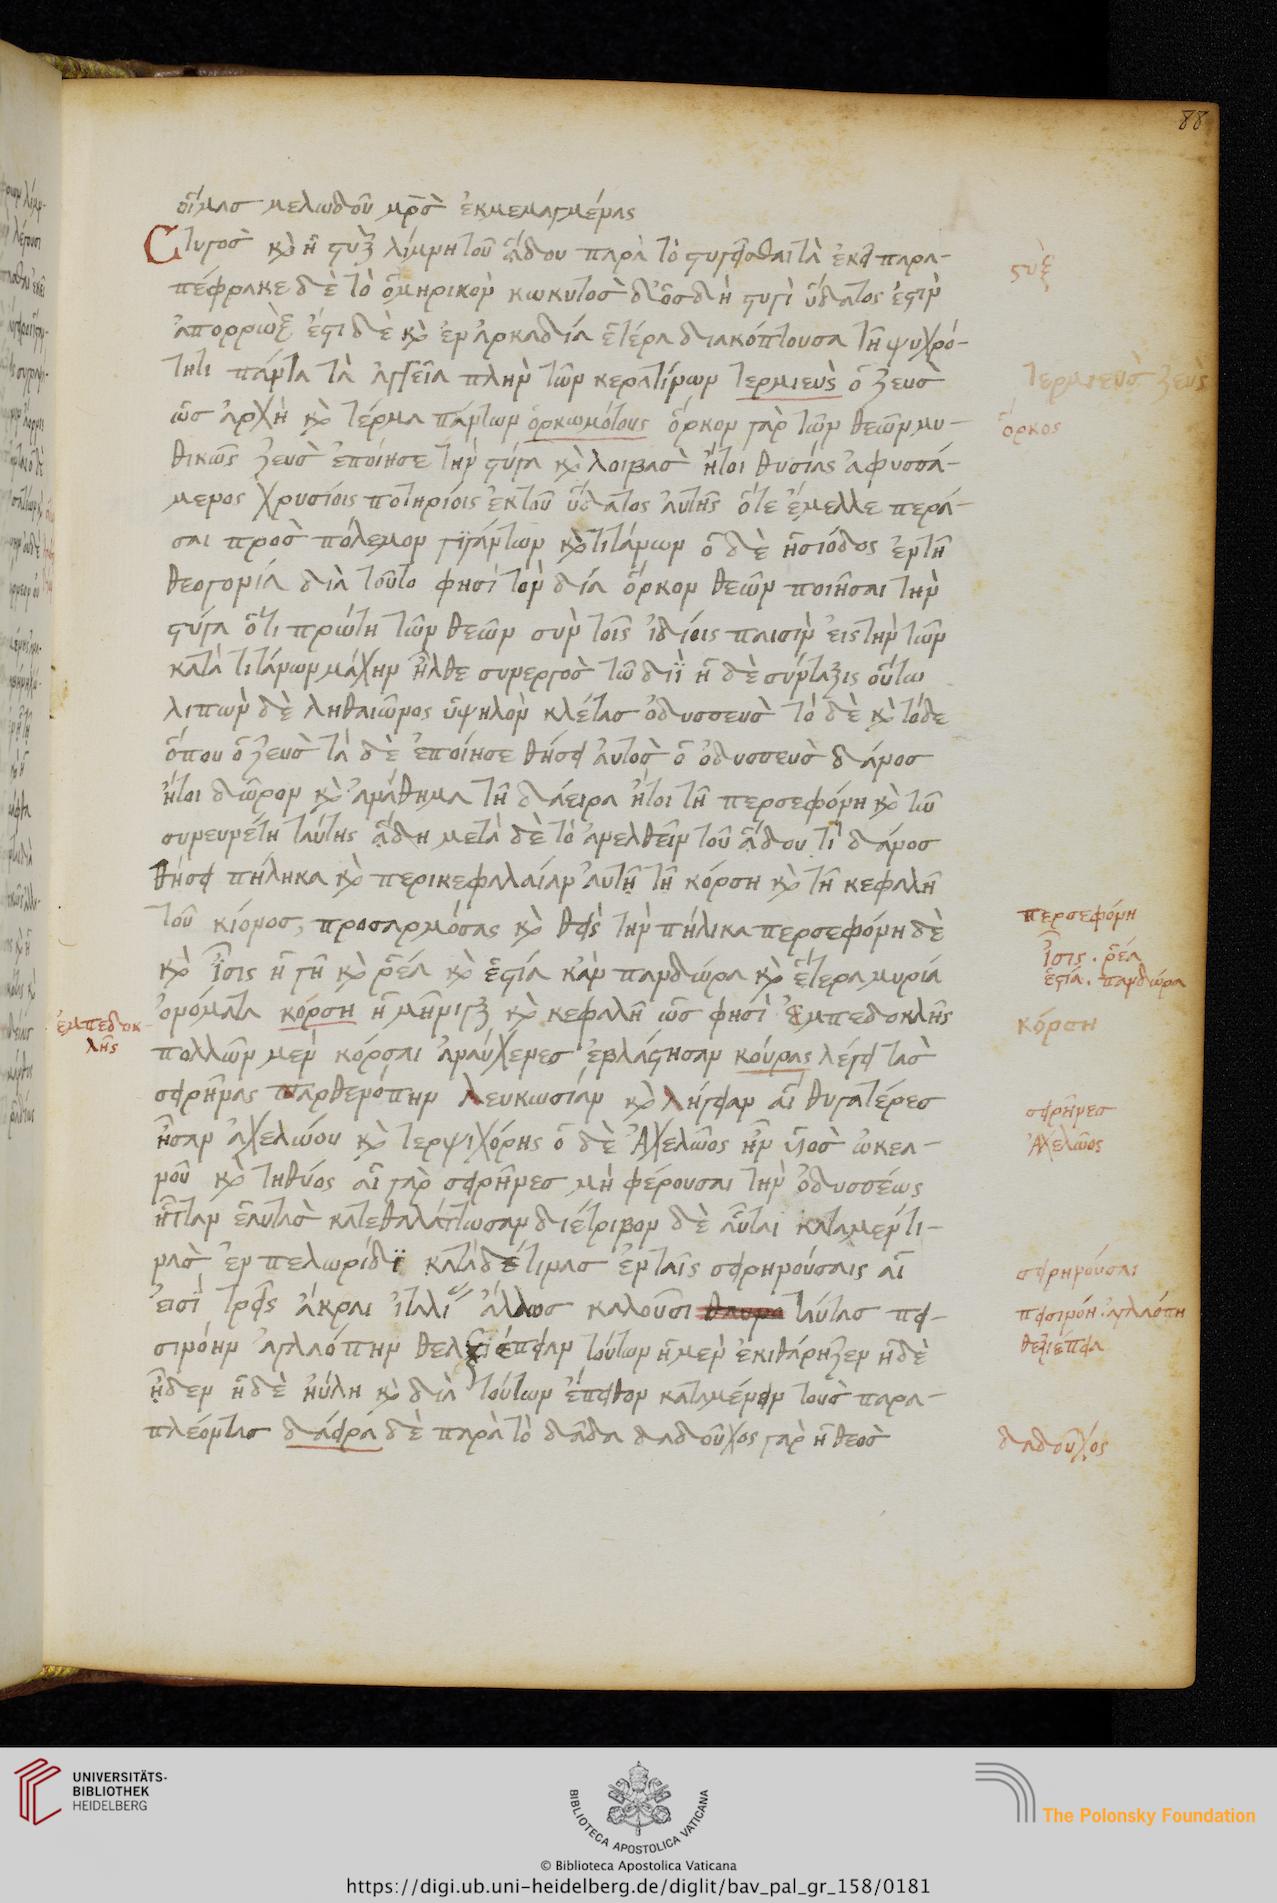 88
οἴμασ μελωδοῦ μρ̅σ̀ ἐκμεμαγμένας
Στυγοσ κ̀ ἡ στὺξ λίμνη τοῦ ἅδου παρὰ τὸ στυγεῖσθαι τὰ ἐκεῖ παρα-
πέφρακε δὲ τὸ ὁμηρικὸν κωκυτοσ δ' ὃσ δὴ στυγὶ ὕδατος ἐστὶν
ἀπορρὼξ ἔστι δὲ κ̀ ἐν ἀρκαδία ἑτέρα διακόπτουσα τῆ ψυχρό-
τητι πάντα τὰ ἀγγεῖα πλὴν τῶν κερατίνων τερμιεὺσ ὁ ζευσ
ὡσ ἀρχὴ κ̀ τέρμα πάντων ὁρκωμότους ὅρκον γὰρ τῶν θεῶν μυ-
θικῶς ζευσ ἐποίησε τὴν στύγα κ̀ λοιβασ ἤτοι θυσίας ἀφυσσά-
μενος χρυσίοις ποτηρίοις ἐκ τοῦ ὕδατος αὐτῆς ὅτε ἔμελλε περά-
σαι προσ πόλεμον γϊγάντων κ̀ τιτάνων ὁ δὲ ἡσιόδος ἐν τῆ
θεογονία διὰ τοῦτο φησὶ τὸν δία ὅρκον θεῶν ποιῆσαι τὴν
στύγα ὅτι πρώτη τῶν θεῶν σὺν τοῖς ἰδίοις παισὶν εἰς τὴν τῶν
κατὰ τιτάνων μάχην ἦλθε συνεργοσ τῶ διῒ ἡ δὲ σύνταξις οὕτω
λιπὼν δὲ ληθαιῶνος ὑψηλὸν κλέτασ ὀδυσσευσ τὸ δὲ κ̀ τόδε
ὅπου ὁ ζευσ τὰ δὲ ἐποίησε θήσει αὐτοσ ὁ ὀδυσσευσ δάνοσ
ἤτοι δῶρον κ̀ ἀνάθημα τῆ δάειρα ἤτοι τῆ περσεφόνη κ̀ τῶ
συνευνέτη ταύτης ἅδη μετὰ δὲ τὸ ἀνελθεῖν τοῦ ἅδου τὶ δάνοσ
θήσει πήληκα κ̀ περικεφαλαίαν αὐτῆ τῆ κόρση κ̀ τῆ κεφαλῆ
τοῦ κιόνοσ, προσαρμόσας κ̀ θεὶς τὴν πήλικα περσεφόνη δὲ
κ̀ ἶσις ἡ γῆ κ̀ ῥέα κ̀ ἑστία κἂν πανδώρα κ̀ ἕτερα μυρία
ὀνόματα κόρση ἡ μῆνιγξ κ̀ κεφαλὴ ὡσ φησὶ ἐμπεδοκλῆς
πολλῶν μὲν κόρσαι ἀναύχενεσ ἐβλάστησαν κούρας λέγει τασ
σειρῆνας παρθενόπην λευκωσίαν κ̀ λήγειαν αἳ θυγατέρεσ
ἦσαν ἀχελώου κ̀ τερψιχόρης ὁ δὲ ἀχελῶος ἦν υἱοσ ὠκεα-
νοῦ κ̀ τηθύος αἱ γὰρ σειρῆνεσ μὴ φέρουσαι τὴν ὀδυσσέως
ἧτταν ἑαυτασ κατεθαλάττωσαν διέτριβον δὲ αὗται κατα μέν τι-
νασ ἐν πελωρίδϊ κατὰ δέ τινασ ἐν ταῖς σειρηνούσαις αἳ
εἰσὶ τρεῖς ἄκραι ἰταλί ἄλλωσ καλοῦσι ταύτασ πει-
σινόην ἀγλαόπην θελξιέπειαν τούτων ἡ μὲν ἐκιθάρηζεν ἡ δὲ
ἦδεν ἡ δὲ ηὔλη κ̀ διὰ τούτων ἔπειθον καταμένειν τουσ παρα-
πλέοντασ δάειρα δὲ παρὰ τὸ δᾶδα δαδοῦχος γὰρ ἡ θεοσ
στὺξ
τερμιευσ ζευς
ὅρκος
περσεφόνη
ἶσις . ῥέα
ἑστία . πανδώρα
ἐμπεδοκ-
λῆς
κόρση
σειρῆνεσ
ἀχελῶος
σειρηνούσαι
πεισινόη . ἀγλαόπη
θελξιέπεια
δαδοῦχος
UNIVERSITÄTS-
BIBLIOTHEK
HEIDELBERG
BIBLIOTECA APOSTOLICA VATICANA
The Polonsky Foundation
© Biblioteca Apostolica Vaticana
https://digi.ub.uni-heidelberg.de/diglit/bav_pal_gr_158/0181